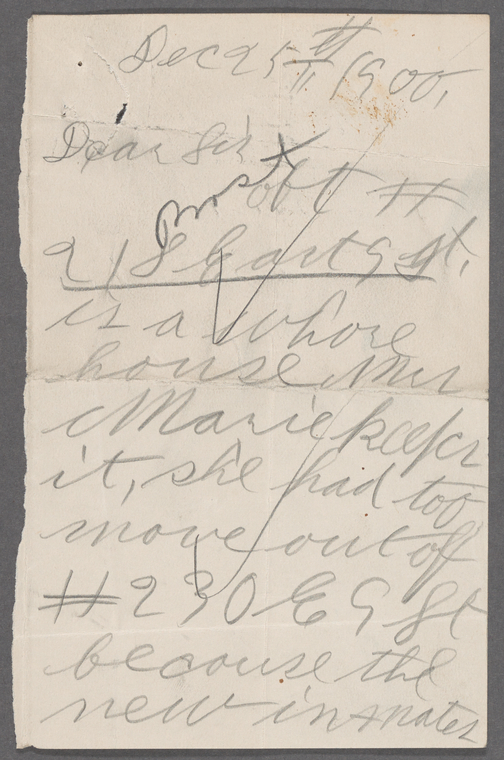 Dec 25th 1900,
Dear Sir
Prost
at #
218 East 9 St,
is a whore
house Mrs
Marie keeps
it, she had too
move out of
#230 E 9 St
because the
new inmates